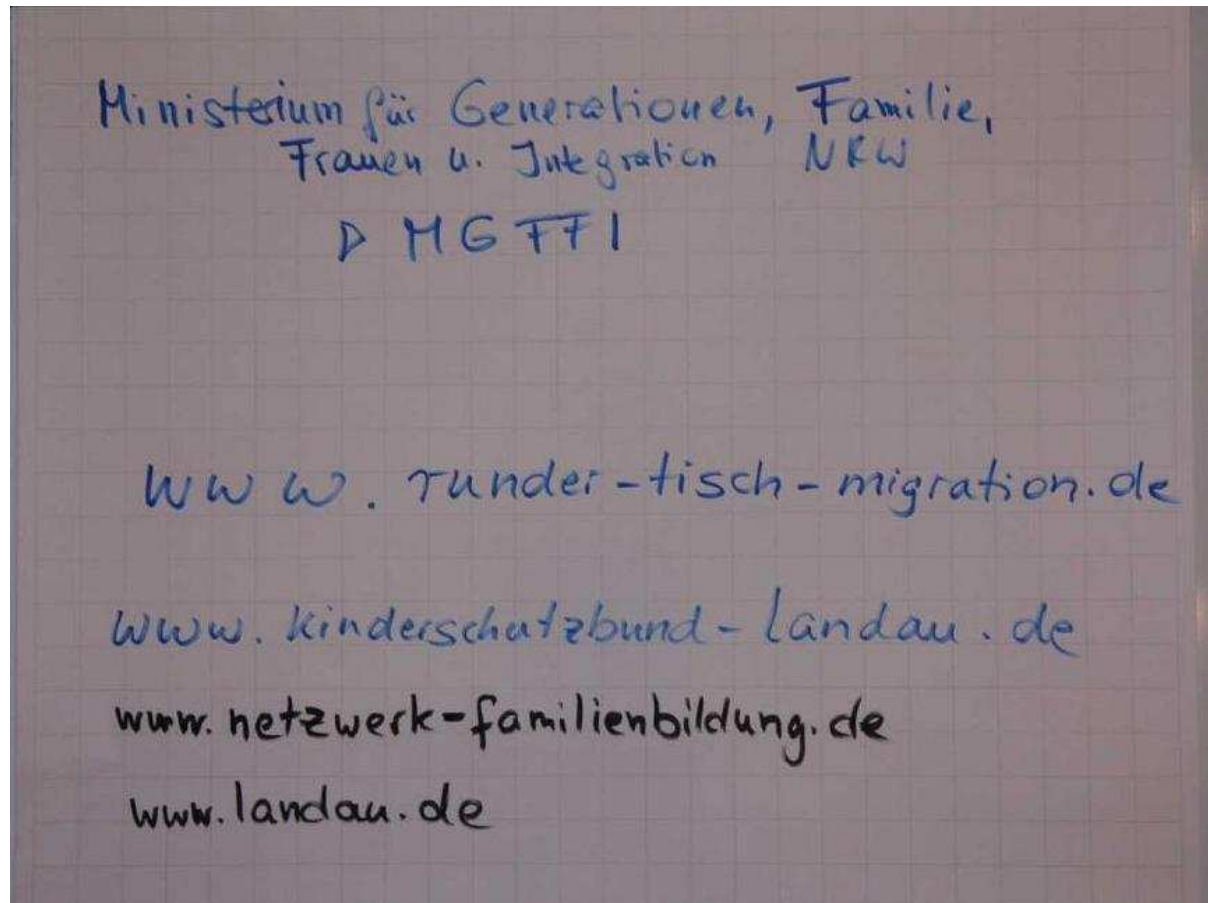 Ministerium für Generationen, Familie,
Frauen u. Integration NRW
▷ MGFFI
www.runder-tisch-migration.de
www.kinderschutzbund-landau.de
www.netzwerk-familienbildung.de
www.landau.de